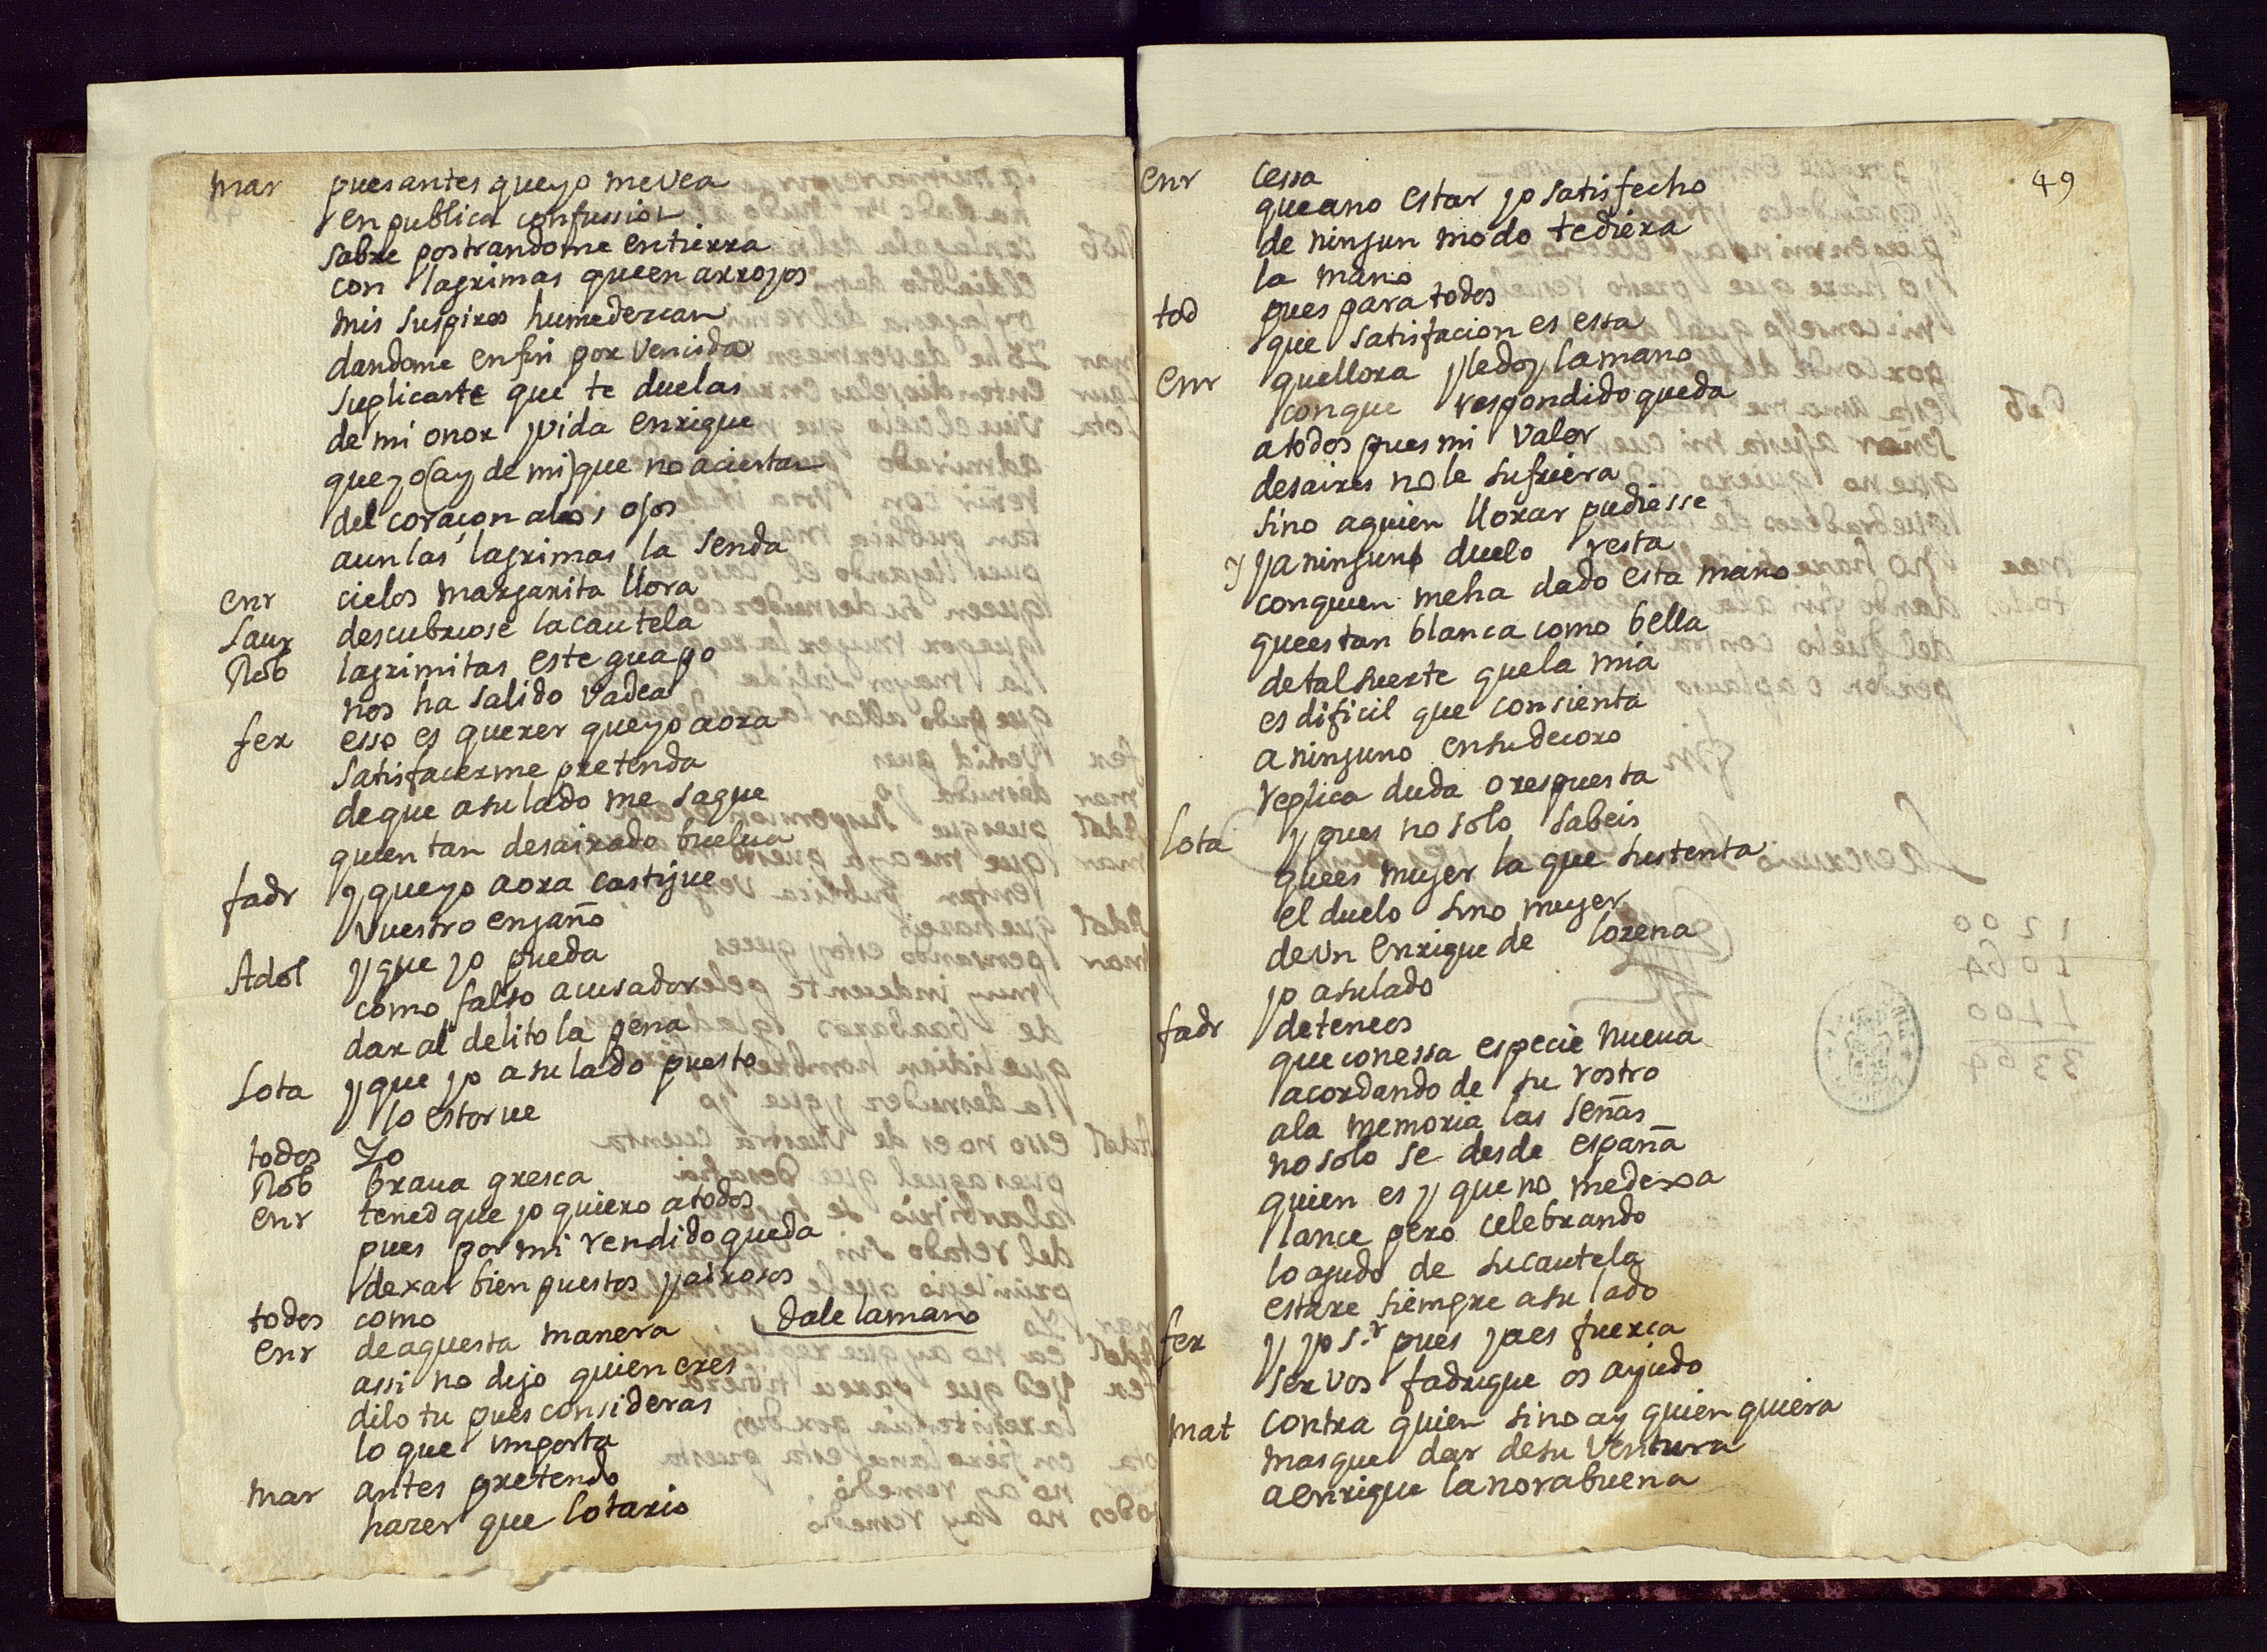 mar pues antes que yo me vea
en publica confussion
sabre postrandome en tierra
con lagrimas que en arroyos
mis suspiros humedezcan
dandome en fin por vencida
suplicarte que te duelas
de mi onor y vida enrique
que yo (ay de mi) que no aciertan
del coraçon a los ojos
aun las lagrimas la senda
enr cielos margarita llora
Laur descubriose la cautela
Rob lagrimitas este guapo
nos ha salido vadea
fer esso es querer que yo aora
satisfacerme pretenda
de que a su lado me saque
quien tan desairado buelua
fadr y que yo aora castigue
vuestro engaño
Adol y que yo pueda
como falso acusador
dar al delito la pena
Lota y que yo a su lado puesto
lo estorue
todos Yo
Rob braua gresca
enr tened que yo quiero a todos
pues por mi rendido queda
dexar bien puestos y airosos
todos como
enr de aquesta manera dale la mano
assi no dijo quien eres
dilo tu pues consideras
lo que importa
mar antes pretendo
hazer que lotario
49
enr cessa
que a no estar yo satisfecho
de ningun modo te diera
la mano
tod pues para todos
que satisfacion es essa
enr que llora y le doy la mano
con que respondido queda
a todos pues mi valor
desaires no le sufriera
sino a quien llorar pudiesse
y ya ninguno duelo resta
con quien me ha dado esta mano
que es tan blanca como bella
de tal suerte que la mia
es dificil que consienta
a ninguno en su decoro
replica duda o respuesta
Lota y pues no solo sabeis
que es mujer la que sustenta
el duelo sino mujer
de vn enrique de lorena
yo a su lado
fadr deteneos
que con essa especie nueua
acordando de su rostro
a la memoria las señas
no solo se desde españa
quien es y que no me dexa
lance pero celebrando
lo agudo de su cautela
estare siempre a su lado
fer y yo s.r pues ya es fuerça
ser vos fadrique os ayudo
mat contra quien sino ay quien quiera
mas que dar de su ventura
a enrique la norabuena